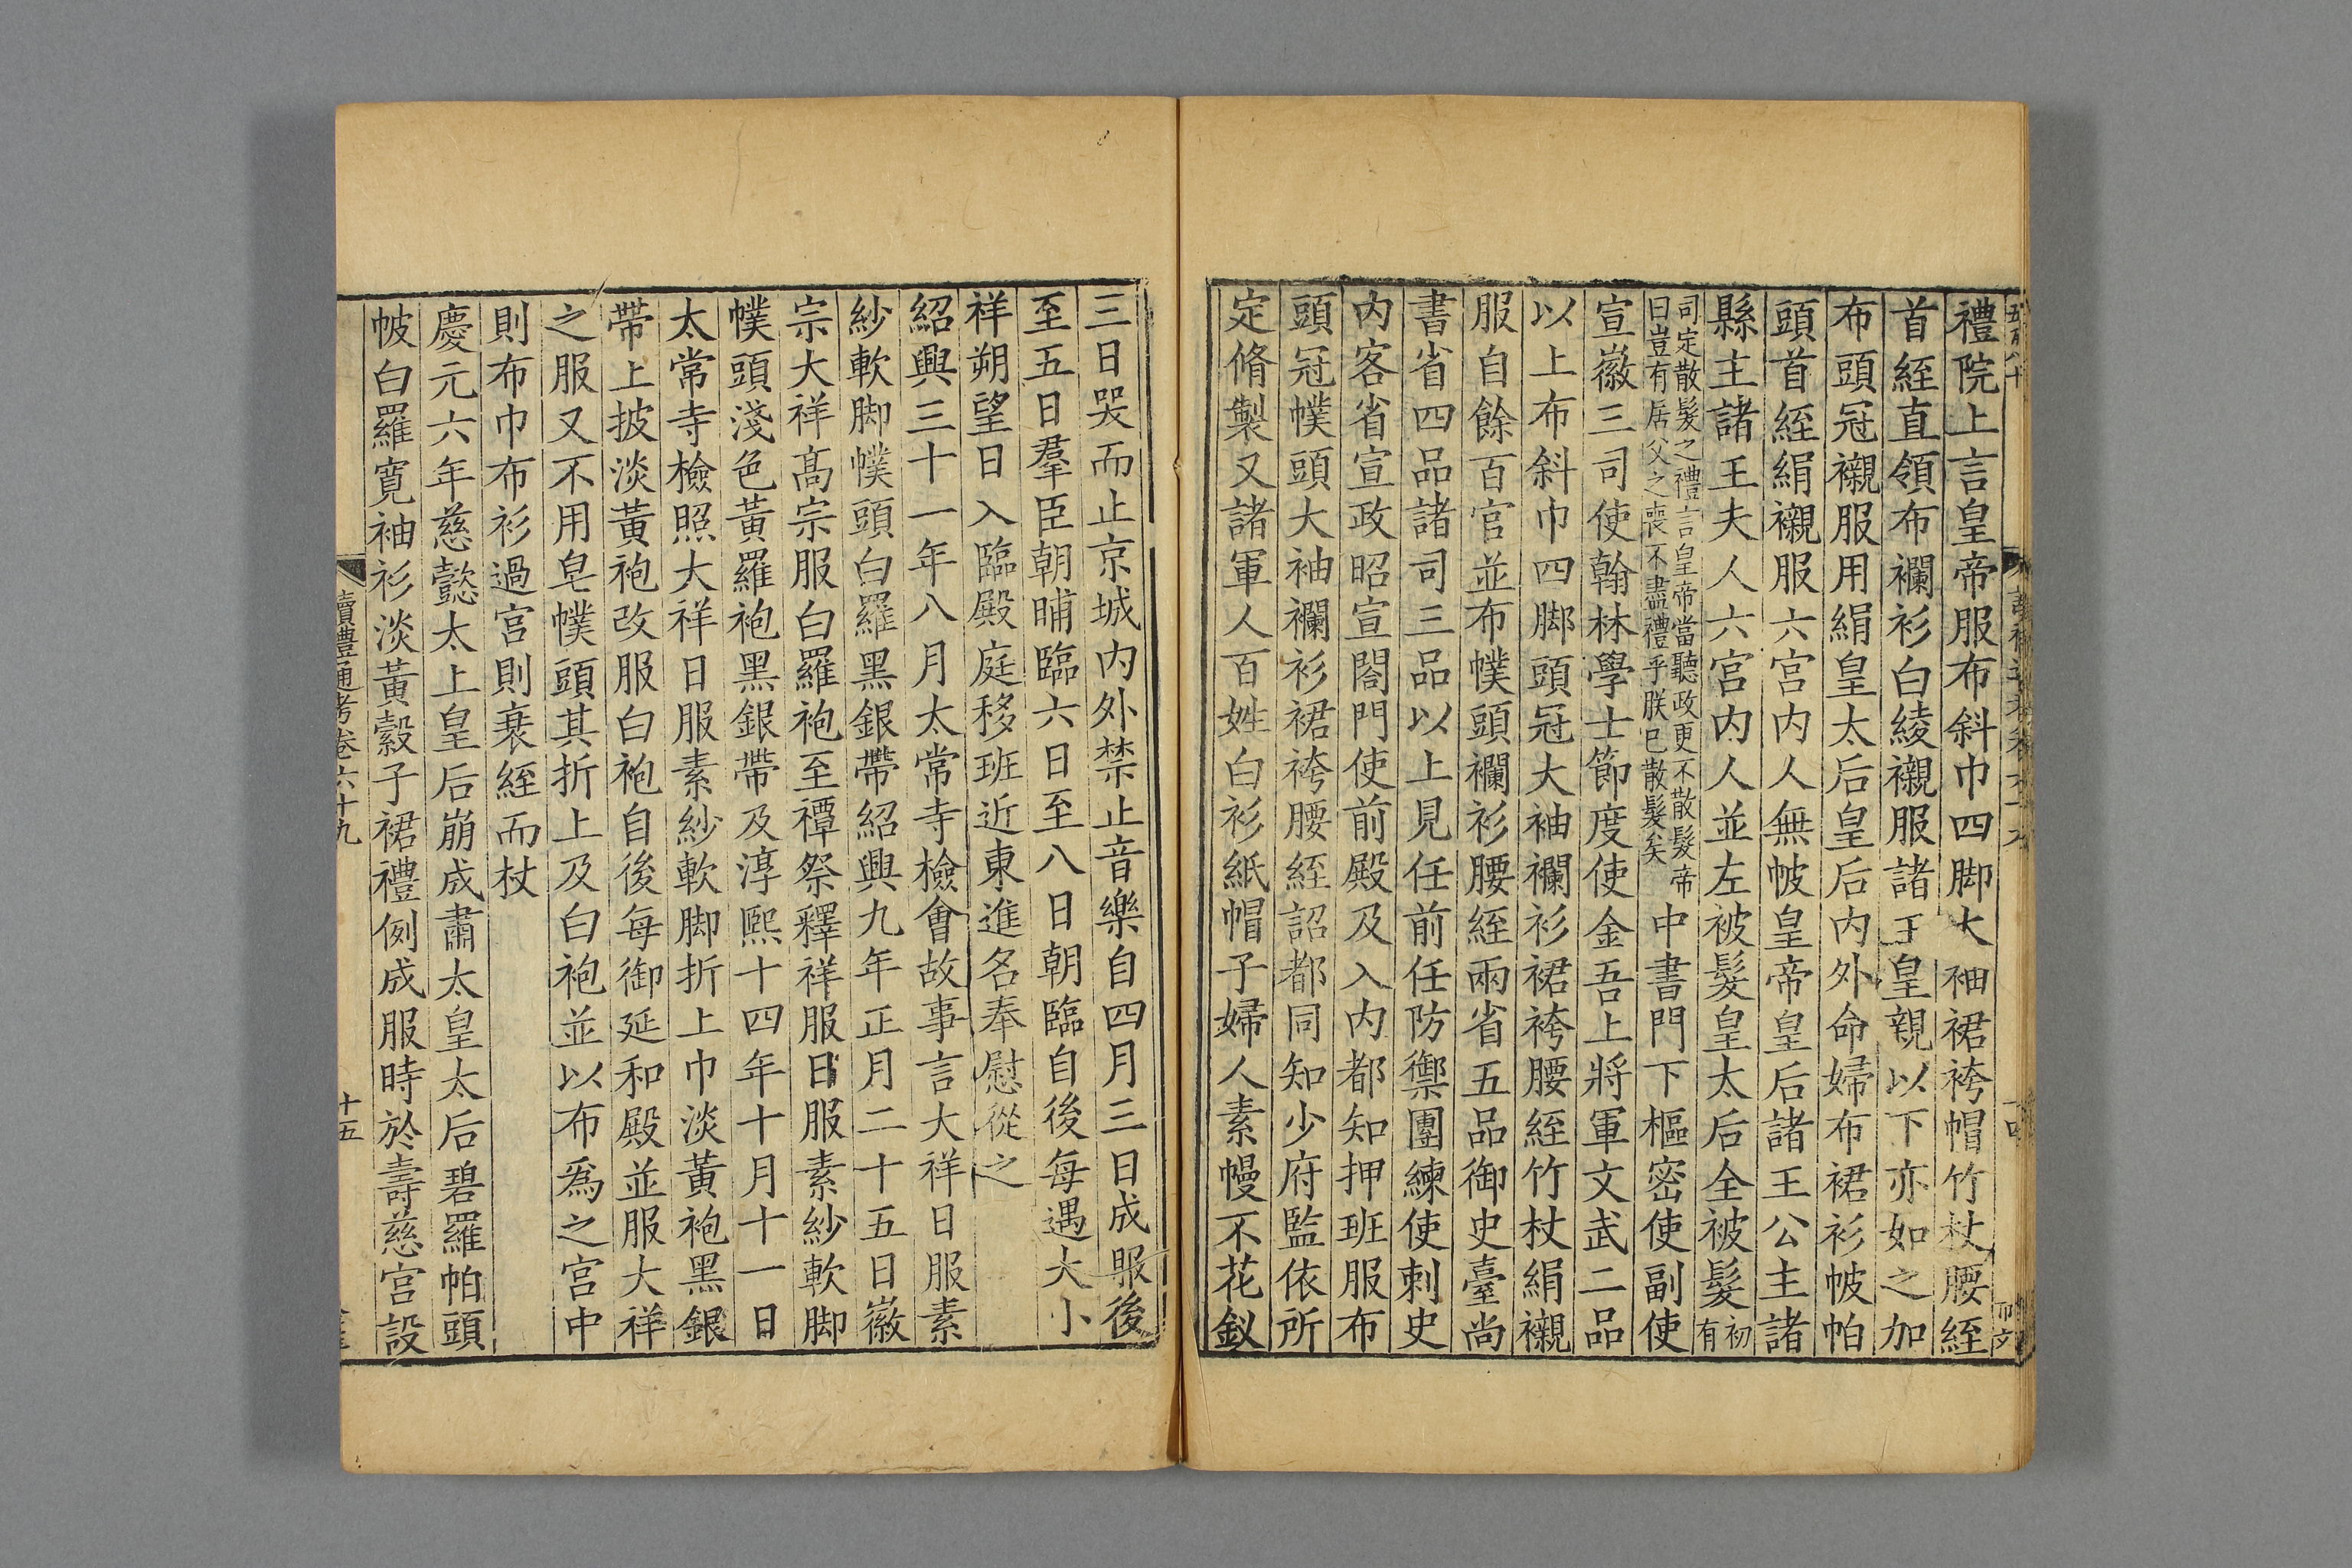 禮院上言皇帝服布斜巾四脚大袖裙袴帽竹杖腰絰
首絰直領布襴衫白綾襯服諸王皇親以下亦如之加
布頭冠襯服用絹皇太后皇后内外命婦布裙衫帔帕
頭首絰絹襯服六宫内人無帔皇帝皇后諸王公主諸
縣主諸王夫人六宫内人並左被髮皇太后全被髮初有
司定散髮之禮言皇帝當聽政更不散髮帝
曰豈有居父之喪不盡禮乎朕已散髮矣
中書門下樞密使副使
宣徽三司使翰林學士節度使金吾上將軍文武二品
以上布斜巾四脚頭冠大袖襴衫裙袴腰絰竹杖絹襯
服自餘百官並布幞頭襴衫腰絰兩省五品御史臺尚
書省四品諸司三品以上見任前任防禦團練使刺史
内客省宣政昭宣閤門使前殿及入内都知押班服布
頭冠幞頭大袖襴衫裙袴腰絰詔都同知少府監依所
定脩製又諸軍人百姓白衫紙帽子婦人素幔不花釵
三日哭而止京城内外禁止音樂自四月三日成服後
至五日羣臣朝晡臨六日至八日朝臨自後每遇大小
祥朔望日入臨殿庭移班近東進名奉慰從之
紹興三十一年八月太常寺檢會故事言大祥日服素
紗軟脚幞頭白羅黑銀帶紹興九年正月二十五日徽
宗大祥高宗服白羅袍至禫祭釋祥服日服素紗軟脚
幞頭淺色黃羅袍黑銀帶及淳熙十四年十月十一日
太常寺檢照大祥日服素紗軟脚折上巾淡黃袍黑銀
帶上披淡黃袍改服白袍自後每御延和殿並服大祥
之服又不用皂幞頭其折上及白袍並以布爲之宫中
則布巾布衫過宫則衰絰而杖
慶元六年慈懿太上皇后崩成肅太皇太后碧羅帕頭
帔白羅寛袖衫淡黃縠子裙禮例成服時於壽慈宫設
讀禮通考卷六十九
十五